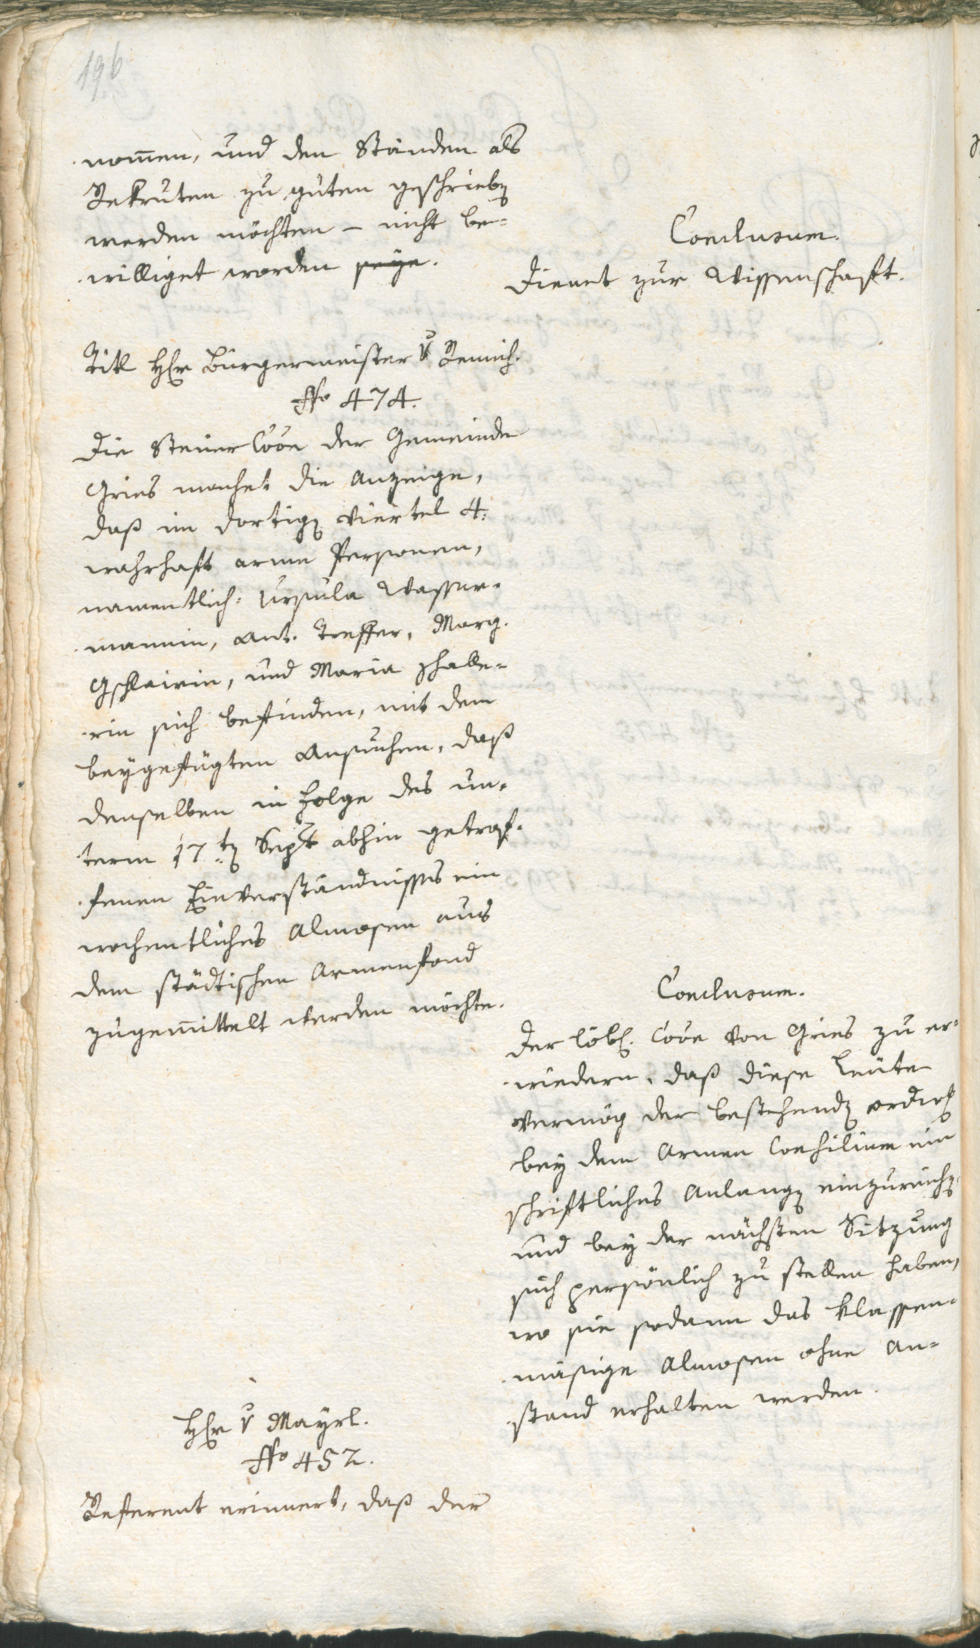 196
nom̄en, und den Ständen als
Rekruten zu guten geschrieben
werden möchten – nicht be-
williget worden seye.
Conclusum.
Dient zur Wissenschaft.
Titl Hr Bürgermeister v
No 474.
Die Steuer Coôn der Gemeinde
Gries machet die Anzeige,
daß im dortigen Viertel 4.
wahrhaft arme Personen,
namentlich: Ursula Wasser-
mannin, Ant. Treffer, Marg.
Gschlairin, und Maria
rin sich befinden, mit dem
beygefügten Ansuchen, daß
denselben in Folge des un-
term 17ten Sept abhin getrof-
fenen Einverständnisses ein
wochentliches Almosen aus
dem städtischen Armenfond
zugemittelt werden möchte.
Conclusum.
Der löbl. Coôn von Gries zu er-
wiedern, daß diese Leute
vermög der bestehenden
bey dem Armen Consilium ein
schriftliches Anlangen einzureichen
und bey der nächsten Sitzung
sich persönlich zu stellen haben,
wo sie sodann das klassen-
mäsige Almosen ohne An-
stand erhalten werden.
Hr v Mayrl.
No 452.
Referent erinnert, daß der